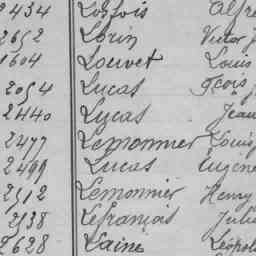 2434 Losfois Alfre
2652 Lorin Victor J
1604 Louvet Louis
2054 Lucas Fcois J
2440 Lucas Jean
2477 Lemonnier Louis
2499 Lucas Eugène
2512 Lemonnier Henry
2538 Lefrançois Juli
2628 Lainé Léopol